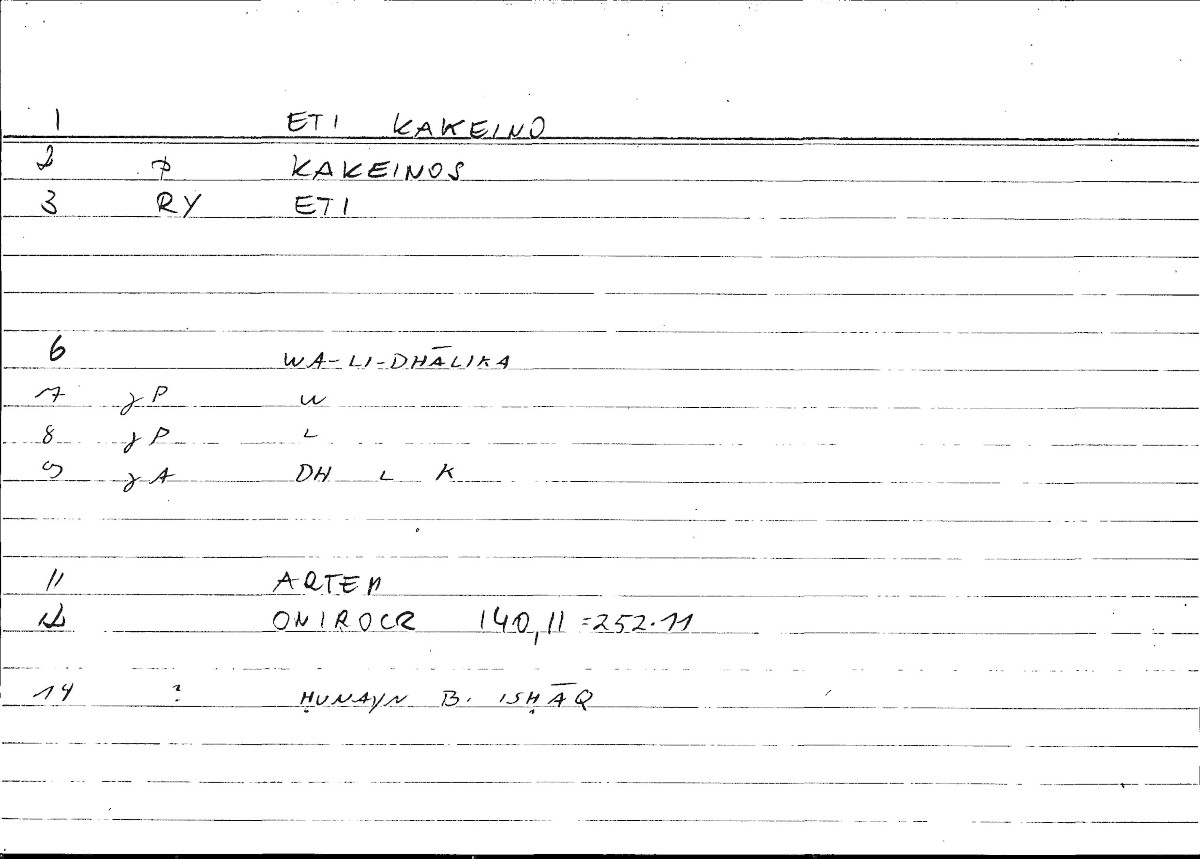 1 ETI KAKEINO
2 P KAKEINOS
3 RY ETI
6 WA-LI-DHĀLIKA
7 γP W
8 γP L
9 γA DH L K
11 ARTEM
12 ONIROCR 140,11=252.11
14 ? ḤUNAYN B. ISḤĀQ